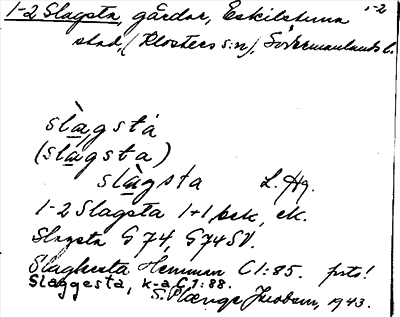 1-2 Slagsta, gårdar, Eskilstuna 1-2
stad, (Klosters s:n), Södermanlands l.
slàgstá
(slágsta)
slàgsta L. Hg.
1-2 Slagsta 1+1 bek, ek.
Slagsta G 74, G 74 SV.
Slaghesta Hemman C 1:85. foto!
Slaggesta, k-a C 1:88.
S. Plænge Jacobson, 1943.